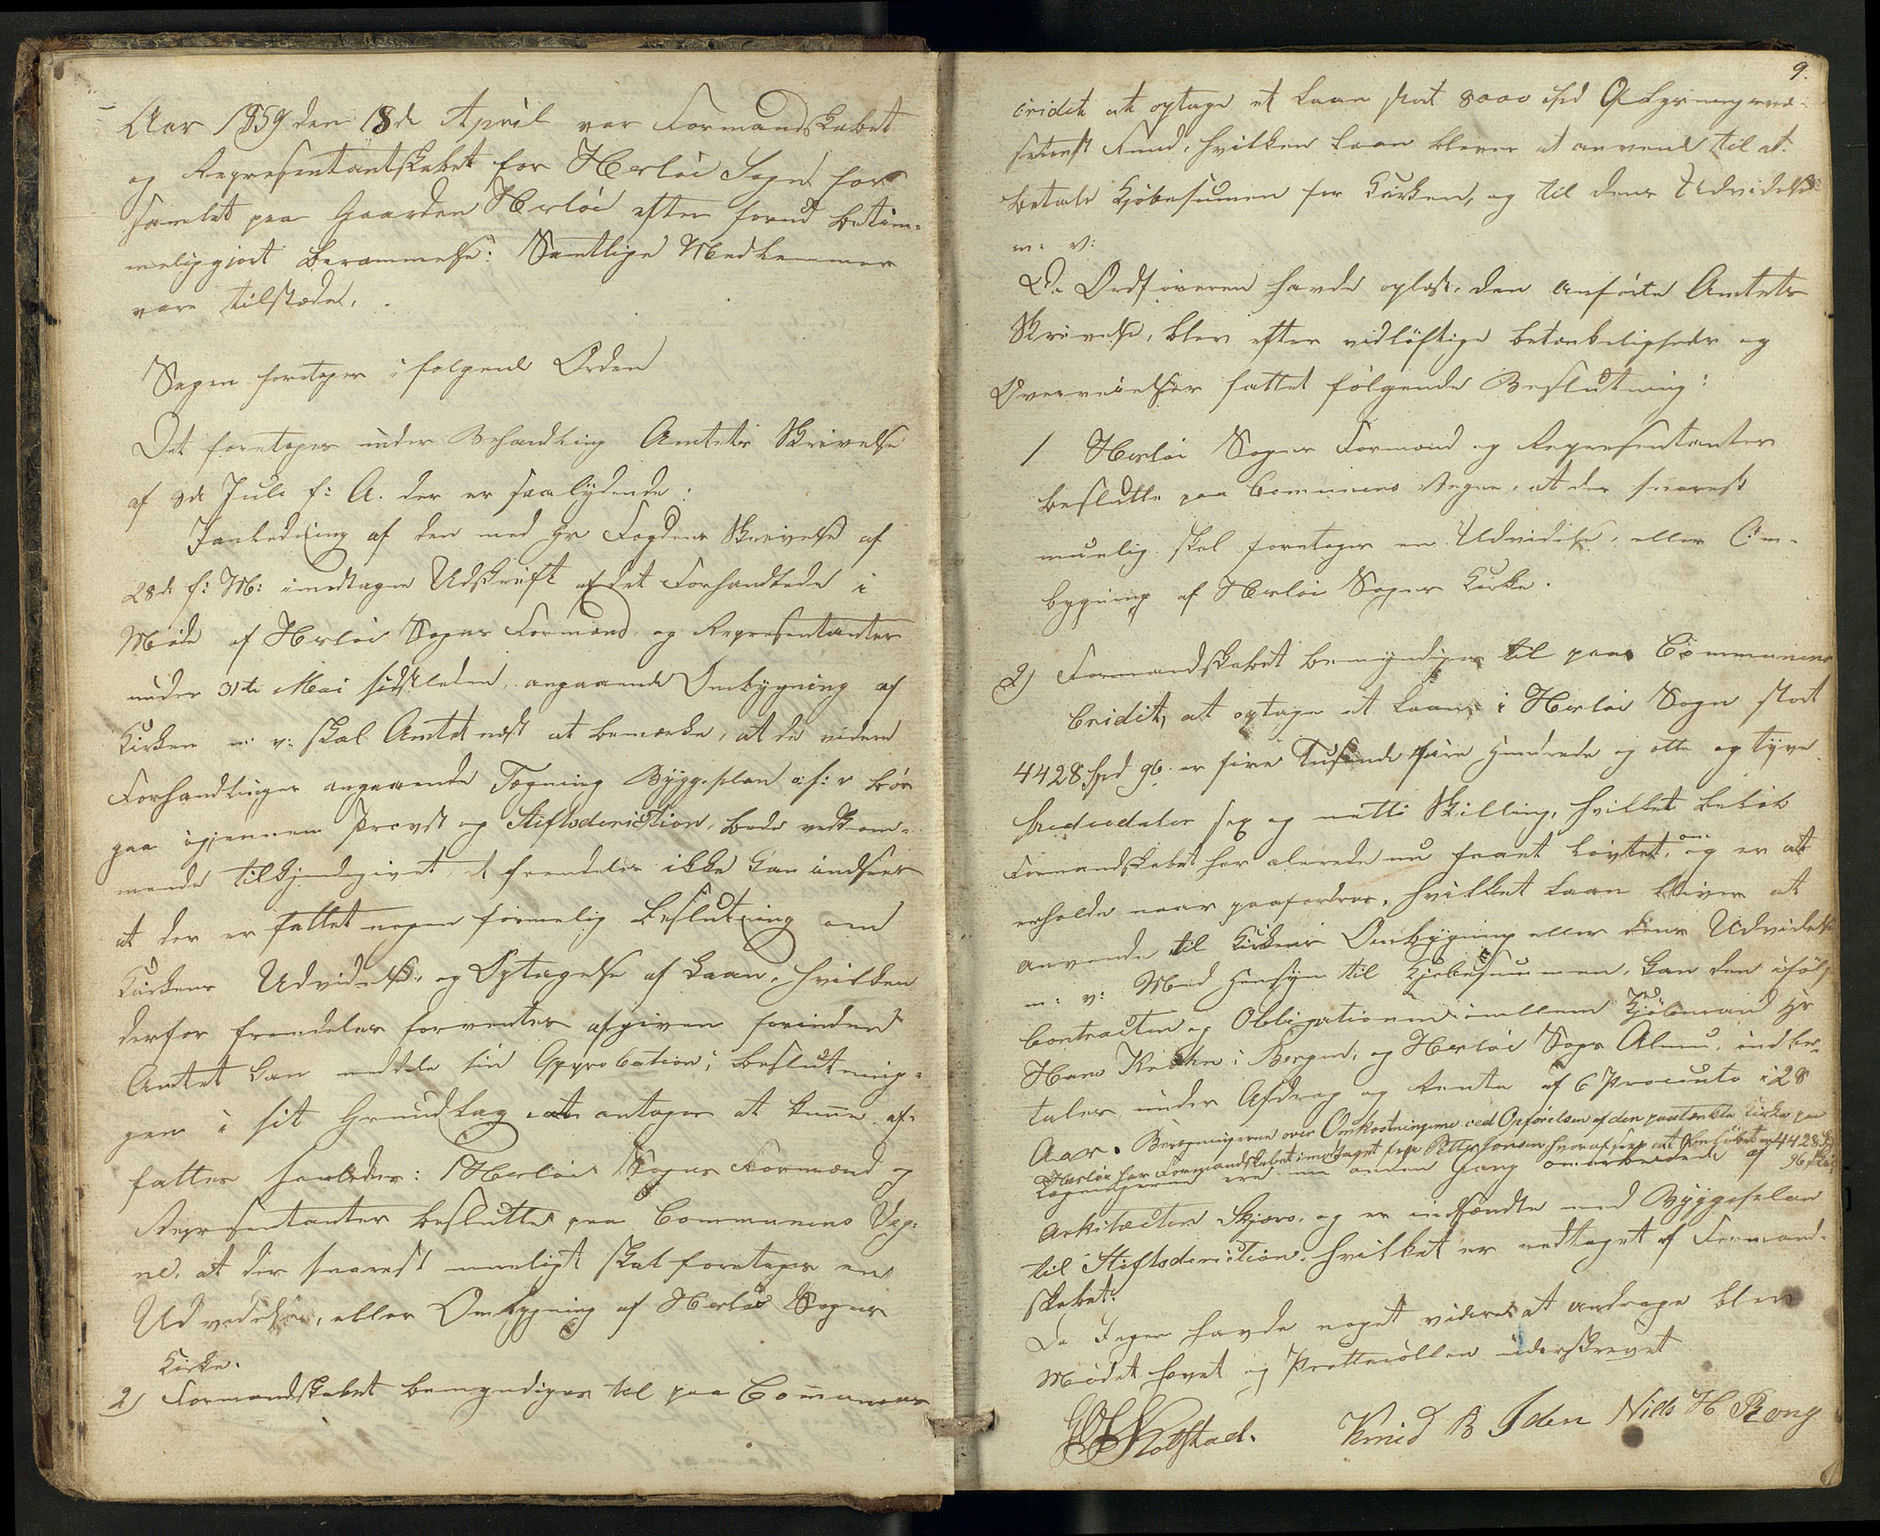 Aar 1859 den 18de April var Formandskabet
og Representantskabet for Herløe Sogn for
samlet paa Gaarden Herløe efter forud betim-
meliggjort Berammelse. Samtlige Medlemmer
vare tilstede.
Sagen foretages i følgende Orden
Det foretages under Behandling Amtets Skrivelse
af 8de Juli f: A. der er saalydende:
I Anledning af den med Hr Fogdens Skrivelse af
28de f: M: imodtagne Udskrift af det Forhandlede i
Møde af Herløe Sogns Formænd og Representanter
under 31te Mai sidstleden, angaaende Ombygning af
Kirken m: v: skal Amtet næst at bemærke, at de videre
Forhandlinger angaaende Tegning Byggeplan o: s: v bør
gaa igjennem Provst og Stiftsdirection, bede vedkom-
mende tilkjendegivet, at fremdeles ikke kan indsees
at der er fattet nogen formelig Beslutning om
Kirkens Udvidelse, og Optagelse af Laan, hvilken
derfor fremdeles forventes afgiven forinden
Amtet kan meddele sin Approbation; Beslutnin-
gen i sit Grundlag antages at kunne af-
fattes saaledes: 1 Herløe Sogns Formænd og
Representanter beslutte paa Communens Veg-
ne, at der snarest mueligt skal foretages en
Udvidelse, eller Ombygning af Herløe Sogns
Kirke.
2) Formandskabet bemyndiges til paa Communens
9.
Cridit at optage et Laan stort 8000 Spd Oplysningsvæ-
senets Fond, hvilken Laan bliver at anvende til at
betale Kjøbesumen for Kirken, og til dens Udvidelse
m: v:
Da Ordføreren havde oplæst den anførte Amtets
Skrivelse, blev efter vidløftige Betænkeligheder og
Overveielser fattet følgende Beslutning:
1 Herløe Sogns Formænd og Representanter
beslutte paa Communens Vegne, at der snarest
muelig skal foretages en Udvidelse, eller Om-
bygning af Herløe Sogns Kirke.
2) Formandskabet bemyndiges til paa Communens
Cridit, at optage et Laan i Herløe Sogn stort
4428 Spd 96. er fire Tusinde fire Hundrede og otte og tyve
Speciedaler sex og nitti Skilling, hvilket Beløb
Formandskabet har alerede nu faaet Løvte om, og er at
erholde naar paafordres, hvilket Laan bliver at
anvende til Kirkens Ombygning eller dens Udvidelse
m: v: Med Hensyn til Kjøbesummen, kan den ifølge
Contracten og Obligationen imellem Kjøbmand Hr
Herm Krohn i Bergen, og Herløe Sogns Almu, indbe-
tales under Afdrag og Rente af 6 Procento i 28
Aar. Beregningerne over Omkostningerne ved Opførelsen af den paatænkte Kirke paa
Herløe har Formandskabet imodtaget fra Petter Jonsen hvoraf sees at Beløbet er 4428 Spd
96 Skil
Tegningerne ere nu anden Gang omarbeidede af
Arkitecten Skjers, og er indsendte med Byggeplan
til Stiftsdirection, hvilket er vedtaget af Formand-
skabet.
Da Ingen havde noget videre at andrage blev
Mødet hævet og Prottocollen underskrevet
Knud B Iden Nills H Rong